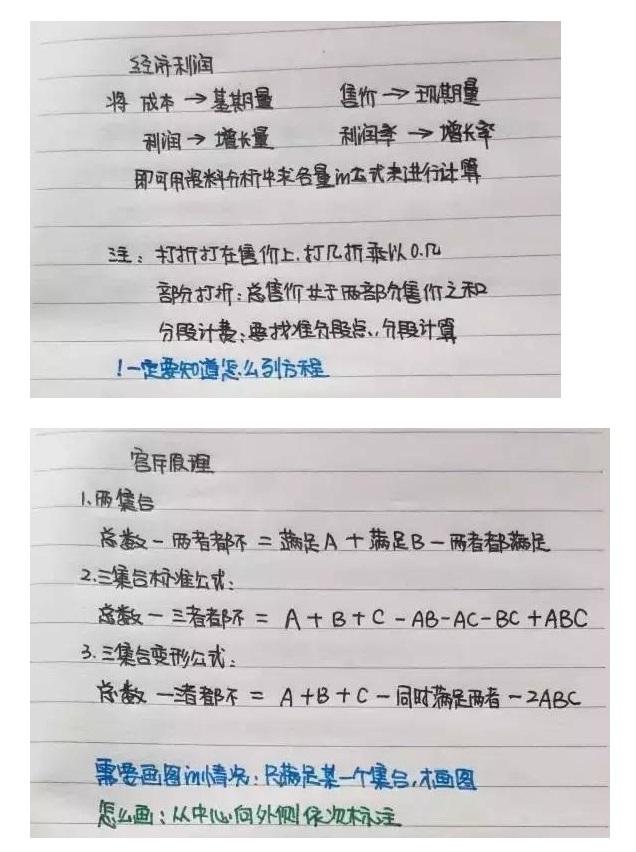 经济利润
将 成本 → 基期量 售价 → 现期量
利润 → 增长量 利润率 → 增长率
即可用资料分析中求各量in公式来进行计算
注：打折打在售价上，打几折乘以0.几
部分打折：总售价等于两部分售价之和
分段计费：要找准分段点，分段计算
！一定要知道怎么列方程
容斥原理
1.两集合
总数－两者都不 = 满足A + 满足B－两者都满足
2.三集合标准公式：
总数－三者都不 = A + B + C - AB - AC - BC + ABC
3.三集合变形公式：
总数－三者都不 = A + B + C－同时满足两者－2ABC
需要画图in情况：只满足某一个集合，才画图
怎么画：从中心向外侧依次标注